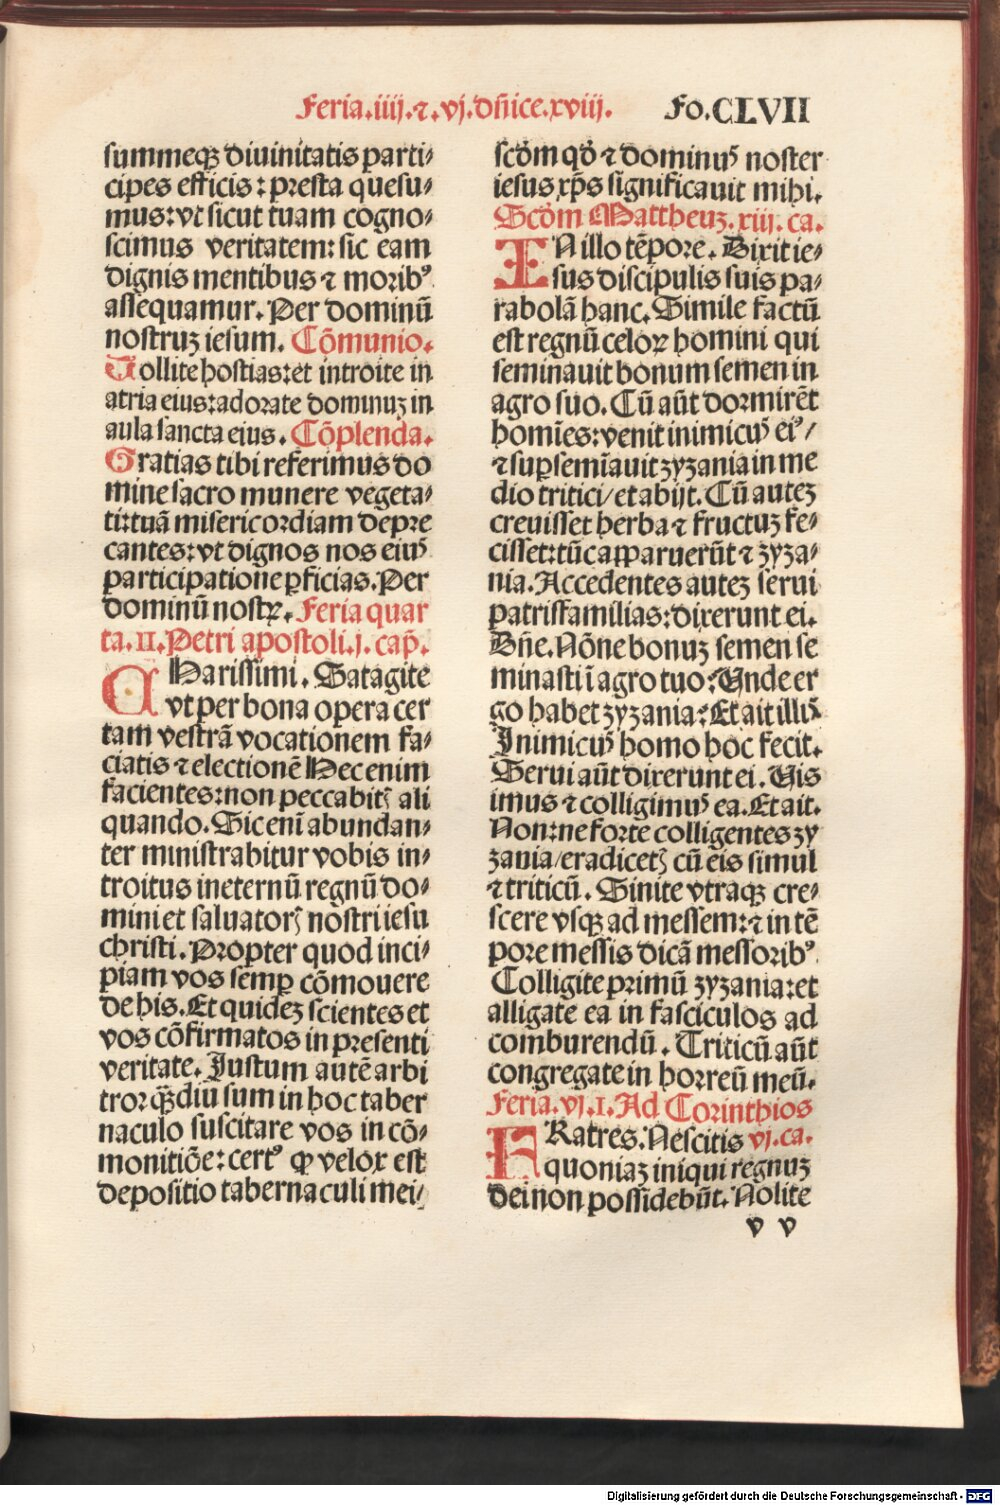 Feria.iiij.⁊.vj.dñice.xviij. Fo.CLVII
summeqꝫ diuinitatis parti⸗
cipes efficis: presta quesu⸗
mus: vt sicut tuam cogno⸗
scimus veritatem: sic eam
dignis mentibus ⁊ moribꝰ
assequamur. Per dominũ
nostruꝫ iesum. Cõmunio.
Tollite hostias: et introite in
atria eius: adorate dominuꝫ in
aula sancta eius. Cõplenda.
Gratias tibi referimus do
mine sacro munere vegeta⸗
ti: tuã misericordiam depre
cantes: vt dignos nos eiuꝰ
participatione ꝑficias. Per
dominũ nostrꝝ. Feria quar
ta. II. Petri apostoli. j. cap̃.
CHarissimi. Satagite
vt per bona opera cer
tam vestrã vocationem fa⸗
ciatis ⁊ electionẽ Hec enim
facientes: non peccabitꝭ ali
quando. Sic enĩ abundan⸗
ter ministrabitur vobis in⸗
troitus in eternũ regnũ do⸗
mini et saluatorꝭ nostri iesu
christi. Propter quod inci⸗
piam vos semꝑ cõmouere
de his. Et quideꝫ scientes et
vos cõfirmatos in presenti
veritate. Justum autẽ arbi
tror qꝫdiu sum in hoc taber
naculo suscitare vos in cõ⸗
monitiõe: certꝰ ꝙ velox est
depositio tabernaculi mei/
scd̃m qd̃ ⁊ dominuꝰ noster
iesus xp̃s significauit mihi.
Scd̃m Mattheuꝫ. xiij. ca.
IN illo tẽpore. Dixit ie⸗
sus discipulis suis pa⸗
rabolã hanc. Simile factũ
est regnũ celoꝝ homini qui
seminauit bonum semen in
agro suo. Cũ aũt dormirẽt
homĩes: venit inimicuꝰ eiꝰ/
⁊ suꝑsemĩauit zyzania in me
dio tritici/ et abijt. Cũ auteꝫ
creuisset herba ⁊ fructuꝫ fe⸗
cisset: tũc apparuerũt ⁊ zyza⸗
nia. Accedentes auteꝫ serui
patrisfamilias: dixerunt ei.
Dñe. Nõne bonuꝫ semen se
minasti ĩ agro tuo? Unde er
go habet zyzania? Et ait illis.
Inimicuꝰ homo hoc fecit.
Serui aũt dixerunt ei. Vis
imus ⁊ colligimuꝰ ea. Et ait.
Non: ne forte colligentes zy
zania/ eradicetꝭ cũ eis simul
⁊ triticũ. Sinite vtraqꝫ cre⸗
scere vsqꝫ ad messem: ⁊ in tẽ
pore messis dicã messoribꝰ.
Colligite primũ zyzania: et
alligate ea in fasciculos ad
comburendũ. Triticũ aũt
congregate in horreũ meũ.
Feria. vj. I. Ad Corinthios
FRatres. Nescitis vj. ca.
quoniaꝫ iniqui regnuꝫ
dei non possidebũt. Nolite
v v
Digitalisierung gefördert durch die Deutsche Forschungsgemeinschaft - DFG